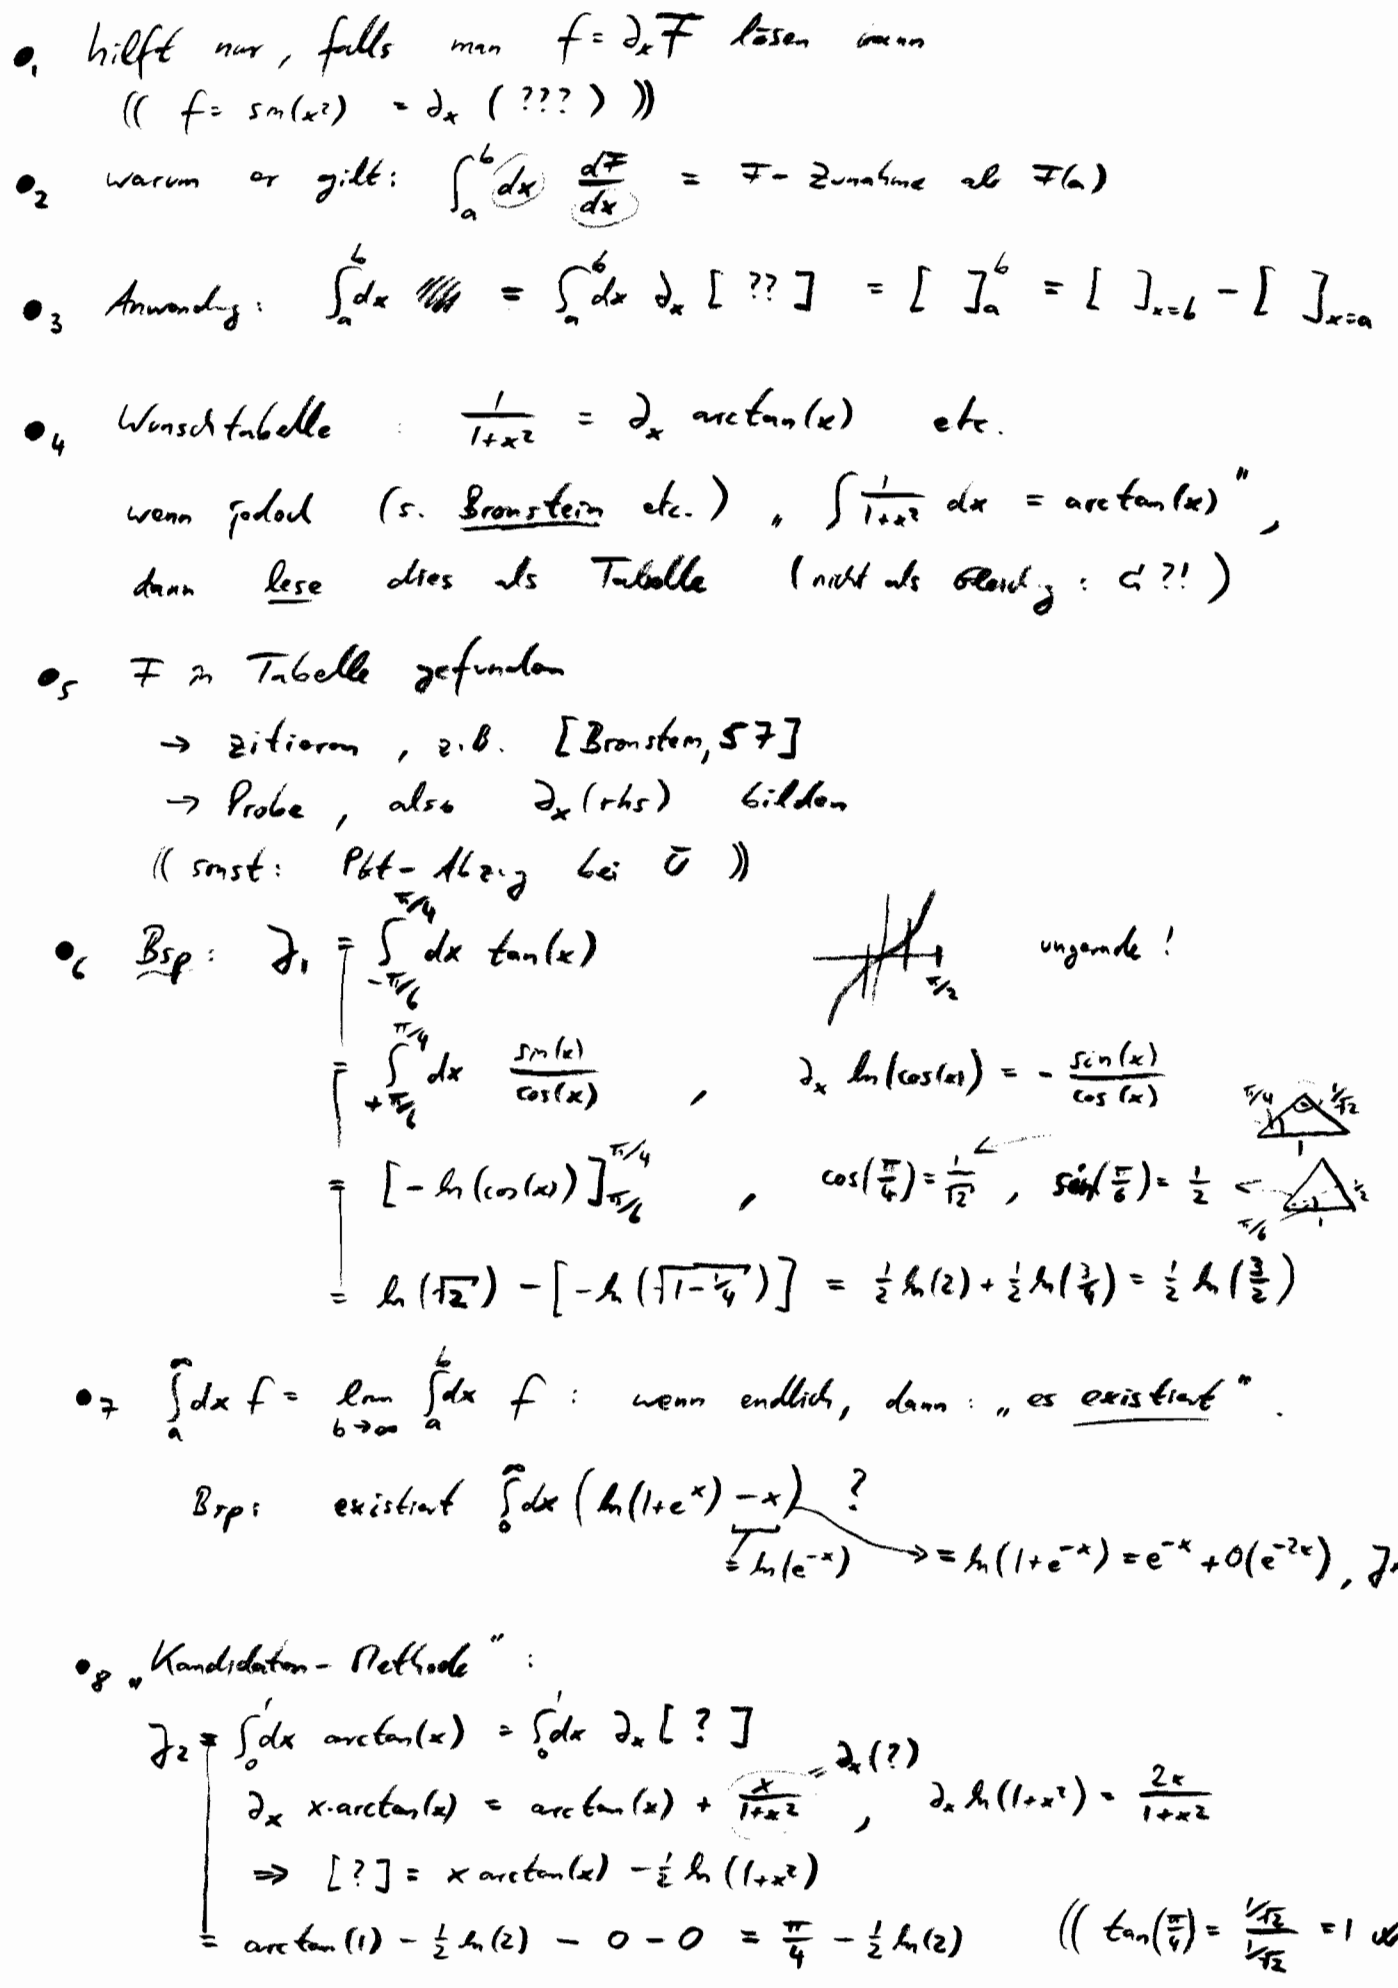 •1 hilft nur, falls man f = ∂ₓF lösen kann
(( f = sin(x²) = ∂ₓ (???) ))
•2 warum er gilt: ∫ₐᵇ dx dF/dx = F-Zunahme ab F(a)
•3 Anwendg: ∫ₐᵇ dx = ∫ₐᵇ dx ∂ₓ [ ?? ] = [ ]ₐᵇ = [ ]ₓ₌b − [ ]ₓ₌ₐ
•4 Wunschtabelle : 1/(1+x²) = ∂ₓ arctan(x) etc.
wenn jedoch (s. Bronstein etc.) „ ∫ 1/(1+x²) dx = arctan(x)",
dann lese dies als Tabelle (nicht als Gleichg : ?!)
•5 F in Tabelle gefunden
→ zitieren, z.B. [Bronstein, 57]
→ Probe, also ∂ₓ(rhs) bilden
(( sonst: Pkt-Abzug bei Ü ))
•6 Bsp: J₁ = ∫_{-π/6}^{π/4} dx tan(x) π/2 ungerade!
= ∫_{+π/6}^{π/4} dx sin(x)/cos(x) , ∂ₓ ln(cos(x)) = − sin(x)/cos(x) π/4 1/√2 1
= [−ln(cos(x))]_{π/6}^{π/4} , cos(π/4) = 1/√2 ← , sin(π/6) = 1/2 ← 1/2 π/6 1
= ln(√2) − [−ln(√(1−1/4))] = ½ ln(2) + ½ ln(3/4) = ½ ln(3/2)
•7 ∫ₐ^∞ dx f = lim_{b→∞} ∫ₐᵇ dx f : wenn endlich, dann: „es existiert".
Bsp: existiert ∫₀^∞ dx (ln(1+eˣ) − x) ?
= ln(e⁻ˣ) → = ln(1+e⁻ˣ) = e⁻ˣ + O(e⁻²ˣ),
•8 „Kandidaten-Methode" :
J₂ = ∫₀¹ dx arctan(x) = ∫₀¹ dx ∂ₓ [ ? ]
∂ₓ x·arctan(x) = arctan(x) + x/(1+x²) = ∂ₓ(?) , ∂ₓ ln(1+x²) = 2x/(1+x²)
⇒ [?] = x arctan(x) − ½ ln(1+x²)
= arctan(1) − ½ ln(2) − 0 − 0 = π/4 − ½ ln(2) (( tan(π/4) = (1/√2)/(1/√2) = 1